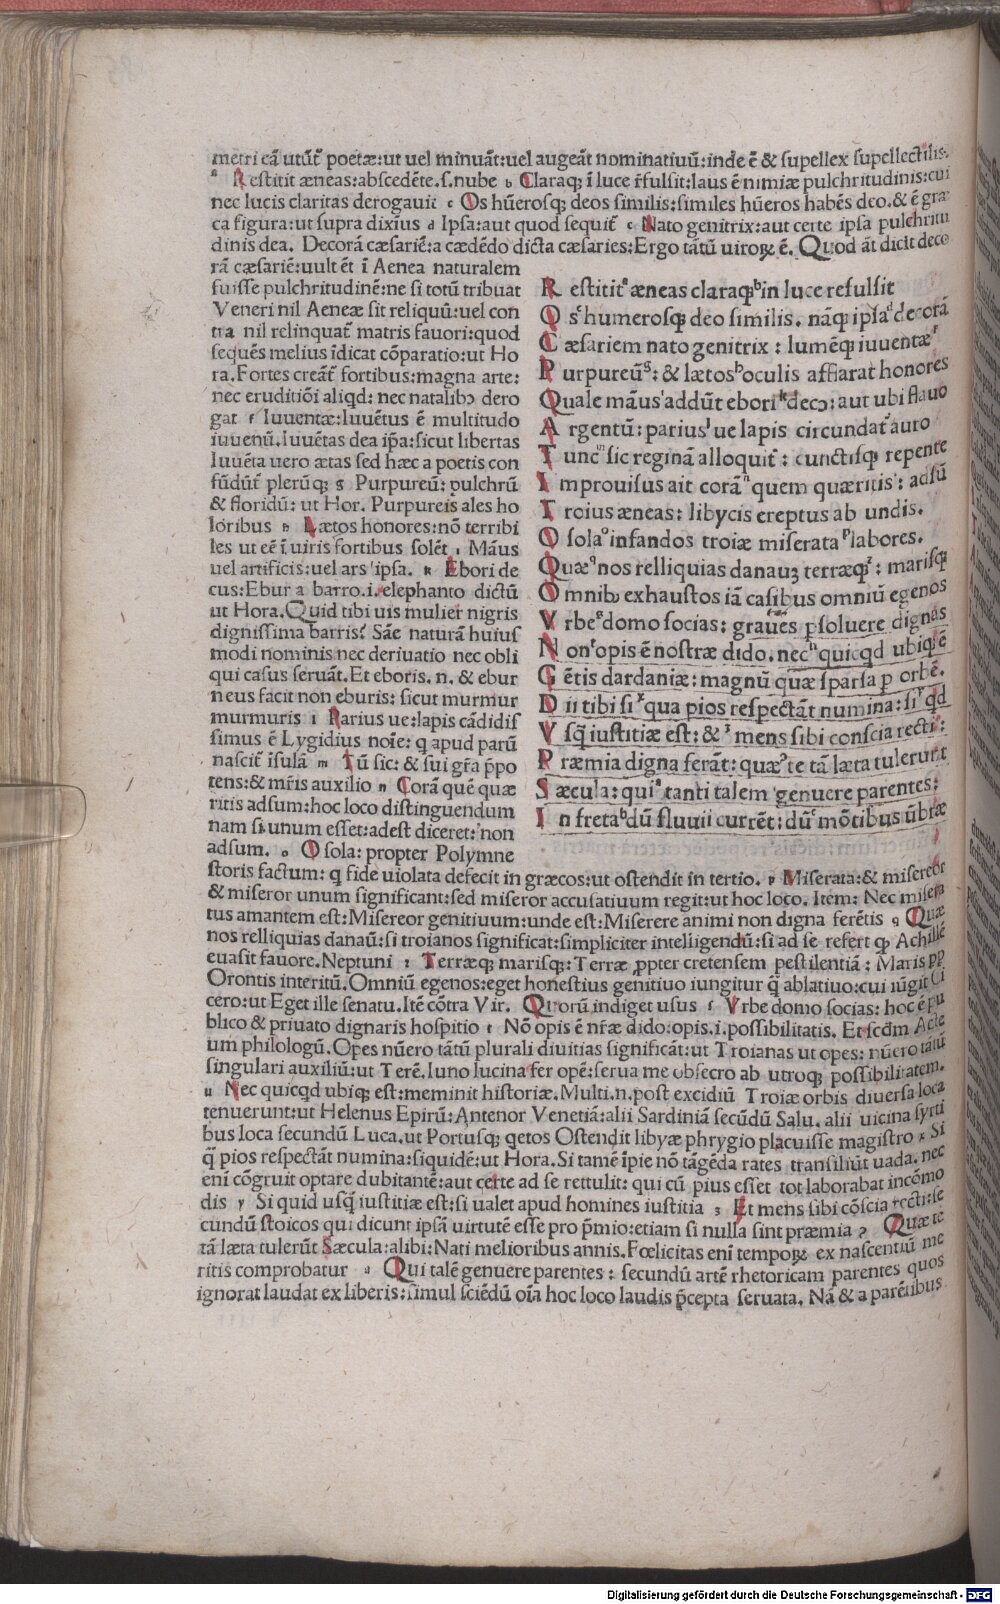 metri eā utūt̄ poetæ:ut uel minuāt:uel augeāt nominatiuū:inde ē & supellex supellectilis.
a Restitit æneas:abscedēte.s.nube b Claraq; ī luce r̄fulsit:laus ē nimiæ pulchritudinis:cui
nec lucis claritas derogauit c Os hūerosq; deos similis:similes hūeros habēs deo.& ē græ
ca figura:ut supra diximus d Ipsa:aut quod sequit̄ e Nato genitrix:aut certe ipsa pulchritu
dinis dea. Decorā cæsariē:a cædēdo dicta cæsaries:Ergo tātū uiroꝝ ē. Quod āt dicit deco
rā cæsariē:uult ēt ī Aenea naturalem
fuisse pulchritudinē:ne si totū tribuat
Veneri nil Aeneæ sit reliquū:uel con
tra nil relinquat̄ matris fauori:quod
sequēs melius īdicat cōparatio:ut Ho
ra.Fortes creāt̄ fortibus:magna arte:
nec eruditiōi aliqd: nec natalibꝰ dero
gat f Iuuentæ:Iuuētus ē multitudo
iuuenū.Iuuētas dea ip̄a:sicut libertas
Iuuēta uero ætas sed hæc a poetis con
fūdūt̄ plerūq; g Purpureū: pulchrū
& floridū: ut Hor. Purpureis ales ho
loribus h Lætos honores:nō terribi
les ut eē ī uiris fortibus solēt i Māus
uel artificis:uel ars ipsa. k Ebori de
cus:Ebur a barro.i.elephanto dictū
ut Hora.Quid tibi uis mulier nigris
dignissima barris? Sāe naturā huius
modi nominis nec deriuatio nec obli
qui casus seruāt.Et eboris. n. & ebur
neus facit non eburis: sicut murmur
murmuris l Parius ue:lapis cādidis
simus ē Lygidius noīe: q apud parū
nascit̄ īsulā m Tū sic: & sui gr̄a p̄po
tens:& mr̄is auxilio n Corā quē quæ
ritis adsum:hoc loco distinguendum
nam si unum esset:adest diceret: non
adsum. o O sola: propter Polymne
R estitit æneas claraq; in luce refulsit
O s humerosq; deo similis. nāq; ipsa decorā
C æsariem nato genitrix : lumēq; iuuentæ
P urpureū: & lætos oculis afflarat honores
Q uale māus addūt ebori decꝰ: aut ubi flauo
A rgentū: parius ue lapis circundat̄ auro
T unc sic reginā alloquit̄ : cunctisq; repente
I mprouisus ait corā quem quæritis : adsū
T roius æneas: libycis ereptus ab undis.
O sola infandos troiæ miserata labores.
Q uæ nos relliquias danauꝫ terræq; : marisq;
O mnibꝰ exhaustos iā casibus omniū egenos
V rbe domo socias: grates p̄soluere dignas
N on opis ē nostræ dido. nec quicqd ubiq; ē
G ētis dardaniæ: magnū quæ sparsa p orbē.
D ii tibi si qua pios respectāt numina: si qd
V sq̄ iustitiæ est: & mens sibi conscia recti :
P ræmia digna ferāt: quæ te tā læta tulerunt
S æcula: qui tanti talem genuere parentes:
I n freta dū fluuii currēt: dū mōtibus ūbræ
storis factum: q fide uiolata defecit in græcos:ut ostendit in tertio. p Miserata:& misereor
& miseror unum significant:sed miseror accusatiuum regit:ut hoc loco. Item: Nec misera
tus amantem est:Misereor genitiuum:unde est:Miserere animi non digna ferētis q Quæ
nos relliquias danaū:si troianos significat:simpliciter intelligendū:si ad se refert qꝫ Achillē
euasit fauore.Neptuni r Terræq; marisq;:Terræ ꝓpter cretensem pestilentiā : Maris ꝓp
Orontis interitū.Omniū egenos:eget honestius genitiuo iungitur q̄ ablatiuo:cui iūgit Ci
cero:ut Eget ille senatu.Itē cōtra Vir. Quorū indiget usus s Vrbe domo socias: hoc ē pu
blico & priuato dignaris hospitio t Nō opis ē nr̄æ dido:opis.i.possibilitatis. Et scdm Acte
um philologū.Opes nūero tātū plurali diuitias significāt:ut Troianas ut opes: nūero tātū
singulari auxiliū:ut Terē.Iuno lucina fer opē:serua me obsecro ab utroq; possibilitatem.
u Nec quicqd ubiq; est:meminit historiæ.Multi.n.post excidiū Troiæ orbis diuersa loca
tenuerunt:ut Helenus Epirū:Antenor Venetiā:alii Sardiniā secūdū Salu. alii uicina syrti
bus loca secundū Luca.ut Portusq; qetos Ostendit libyæ phrygio placuisse magistro x Si
q̄ pios respectāt numina:siquidē:ut Hora.Si tamē īpie nō tāgēda rates transiliūt uada. nec
enī cōgruit optare dubitantē:aut certe ad se rettulit: qui cū pius esset tot laborabat incōmo
dis y Si quid usq̄ iustitiæ est:si ualet apud homines iustitia z Et mens sibi cōscia recti:se
cundū stoicos qui dicunt ipsā virtutē esse pro p̄mio:etiam si nulla sint præmia Quæ te
tā læta tulerūt Sæcula:alibi:Nati melioribus annis.Fœlicitas enī tempoꝝ ex nascentiū me
ritis comprobatur a Qui talē genuere parentes : secundū artē rhetoricam parentes quos
ignorat laudat ex liberis:simul sciēdū oīa hoc loco laudis p̄cepta seruata. Nā & a parētibus
Digitalisierung gefördert durch die Deutsche Forschungsgemeinschaft - DFG